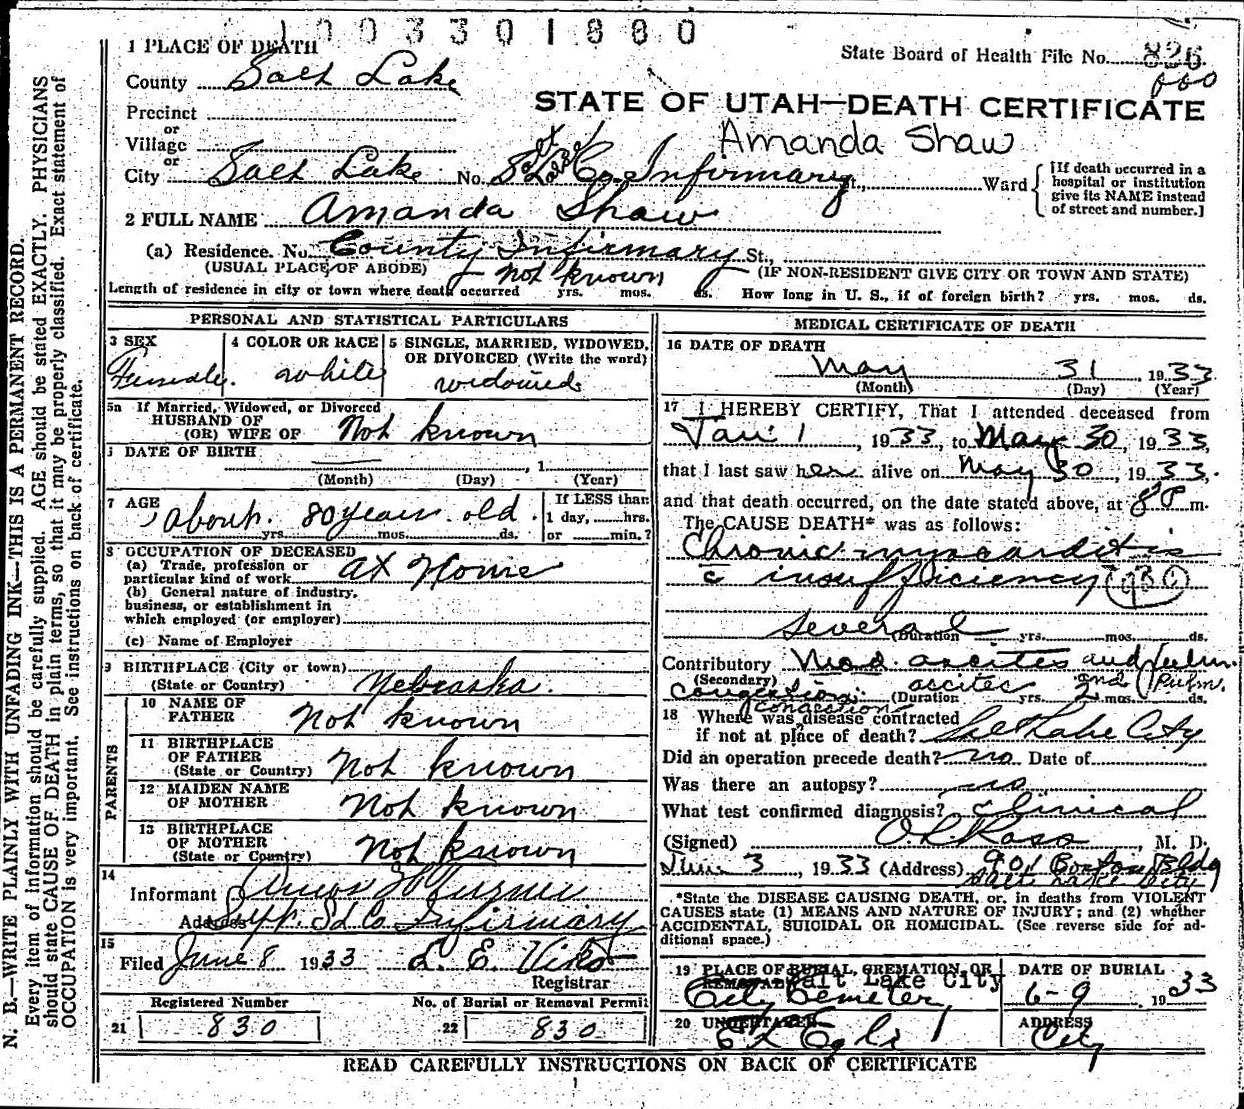 1003301880
1 PLACE OF DEATH
State Board of Health File No. 826
County Salt Lake
STATE OF UTAH—DEATH CERTIFICATE
Precinct
or
Village
Amanda Shaw
or
City Salt Lake No. S. L. Co. Infirmary St., Ward
Salt Lake
[If death occurred in a hospital or institution give its NAME instead of street and number.]
2 FULL NAME Amanda Shaw
(a) Residence. No. County Infirmary St.,
(USUAL PLACE OF ABODE) (IF NON-RESIDENT GIVE CITY OR TOWN AND STATE)
Length of residence in city or town where death occurred not known yrs. mos. ds. How long in U. S., if of foreign birth? yrs. mos. ds.
PERSONAL AND STATISTICAL PARTICULARS
3 SEX Female.
4 COLOR OR RACE white
5 SINGLE, MARRIED, WIDOWED, OR DIVORCED (Write the word) widowed
5a If Married, Widowed, or Divorced
HUSBAND OF
(OR) WIFE OF Not known
DATE OF BIRTH , 1
(Month) (Day) (Year)
7 AGE about 80 years old.
yrs. mos. ds.
If LESS than
1 day, hrs.
or min.?
8 OCCUPATION OF DECEASED
(a) Trade, profession or
particular kind of work at Home
(b) General nature of industry,
business, or establishment in
which employed (or employer)
(c) Name of Employer
9 BIRTHPLACE (City or town)
(State or Country) Nebraska.
PARENTS
10 NAME OF
FATHER Not known
11 BIRTHPLACE
OF FATHER
(State or Country) Not known
12 MAIDEN NAME
OF MOTHER Not known
13 BIRTHPLACE
OF MOTHER
(State or Country) Not known
14
Informant Amos H Turner
Address Supt. S L Co Infirmary
15
Filed June 8 1933 L. E. Viko
Registrar
Registered Number No. of Burial or Removal Permit
21 830 22 830
MEDICAL CERTIFICATE OF DEATH
16 DATE OF DEATH
May 31, 1933
(Month) (Day) (Year)
17 I HEREBY CERTIFY, That I attended deceased from
Jan 1, 1933, to May 30, 1933,
that I last saw her alive on May 30, 1933.
and that death occurred, on the date stated above, at 8 P m.
The CAUSE DEATH* was as follows:
Chronic myocarditis
c insufficiency
several (Duration yrs. mos. ds.
Contributory Mod ascites and Pulm.
(Secondary)
congestion. (Duration yrs. 2 mos. ds.
ascites and Pulm.
congestion
18 Where was disease contracted
if not at place of death? Salt Lake City
Did an operation precede death? no Date of
Was there an autopsy? no
What test confirmed diagnosis? clinical
(Signed) , M. D.
June 3, 1933 (Address) 901 Boston Bldg
Salt Lake City
*State the DISEASE CAUSING DEATH, or, in deaths from VIOLENT
CAUSES state (1) MEANS AND NATURE OF INJURY; and (2) whether
ACCIDENTAL, SUICIDAL OR HOMICIDAL. (See reverse side for ad-
ditional space.)
19 PLACE OF BURIAL, CREMATION, OR
REMOVAL Salt Lake City
City Cemetery
DATE OF BURIAL
6-9 1933
20 UNDERTAKER
ADDRESS
City
READ CAREFULLY INSTRUCTIONS ON BACK OF CERTIFICATE
N. B.—WRITE PLAINLY WITH UNFADING INK—THIS IS A PERMANENT RECORD.
Every item of information should be carefully supplied. AGE should be stated EXACTLY. PHYSICIANS
should state CAUSE OF DEATH in plain terms, so that it may be properly classified. Exact statement of
OCCUPATION is very important. See instructions on back of certificate.